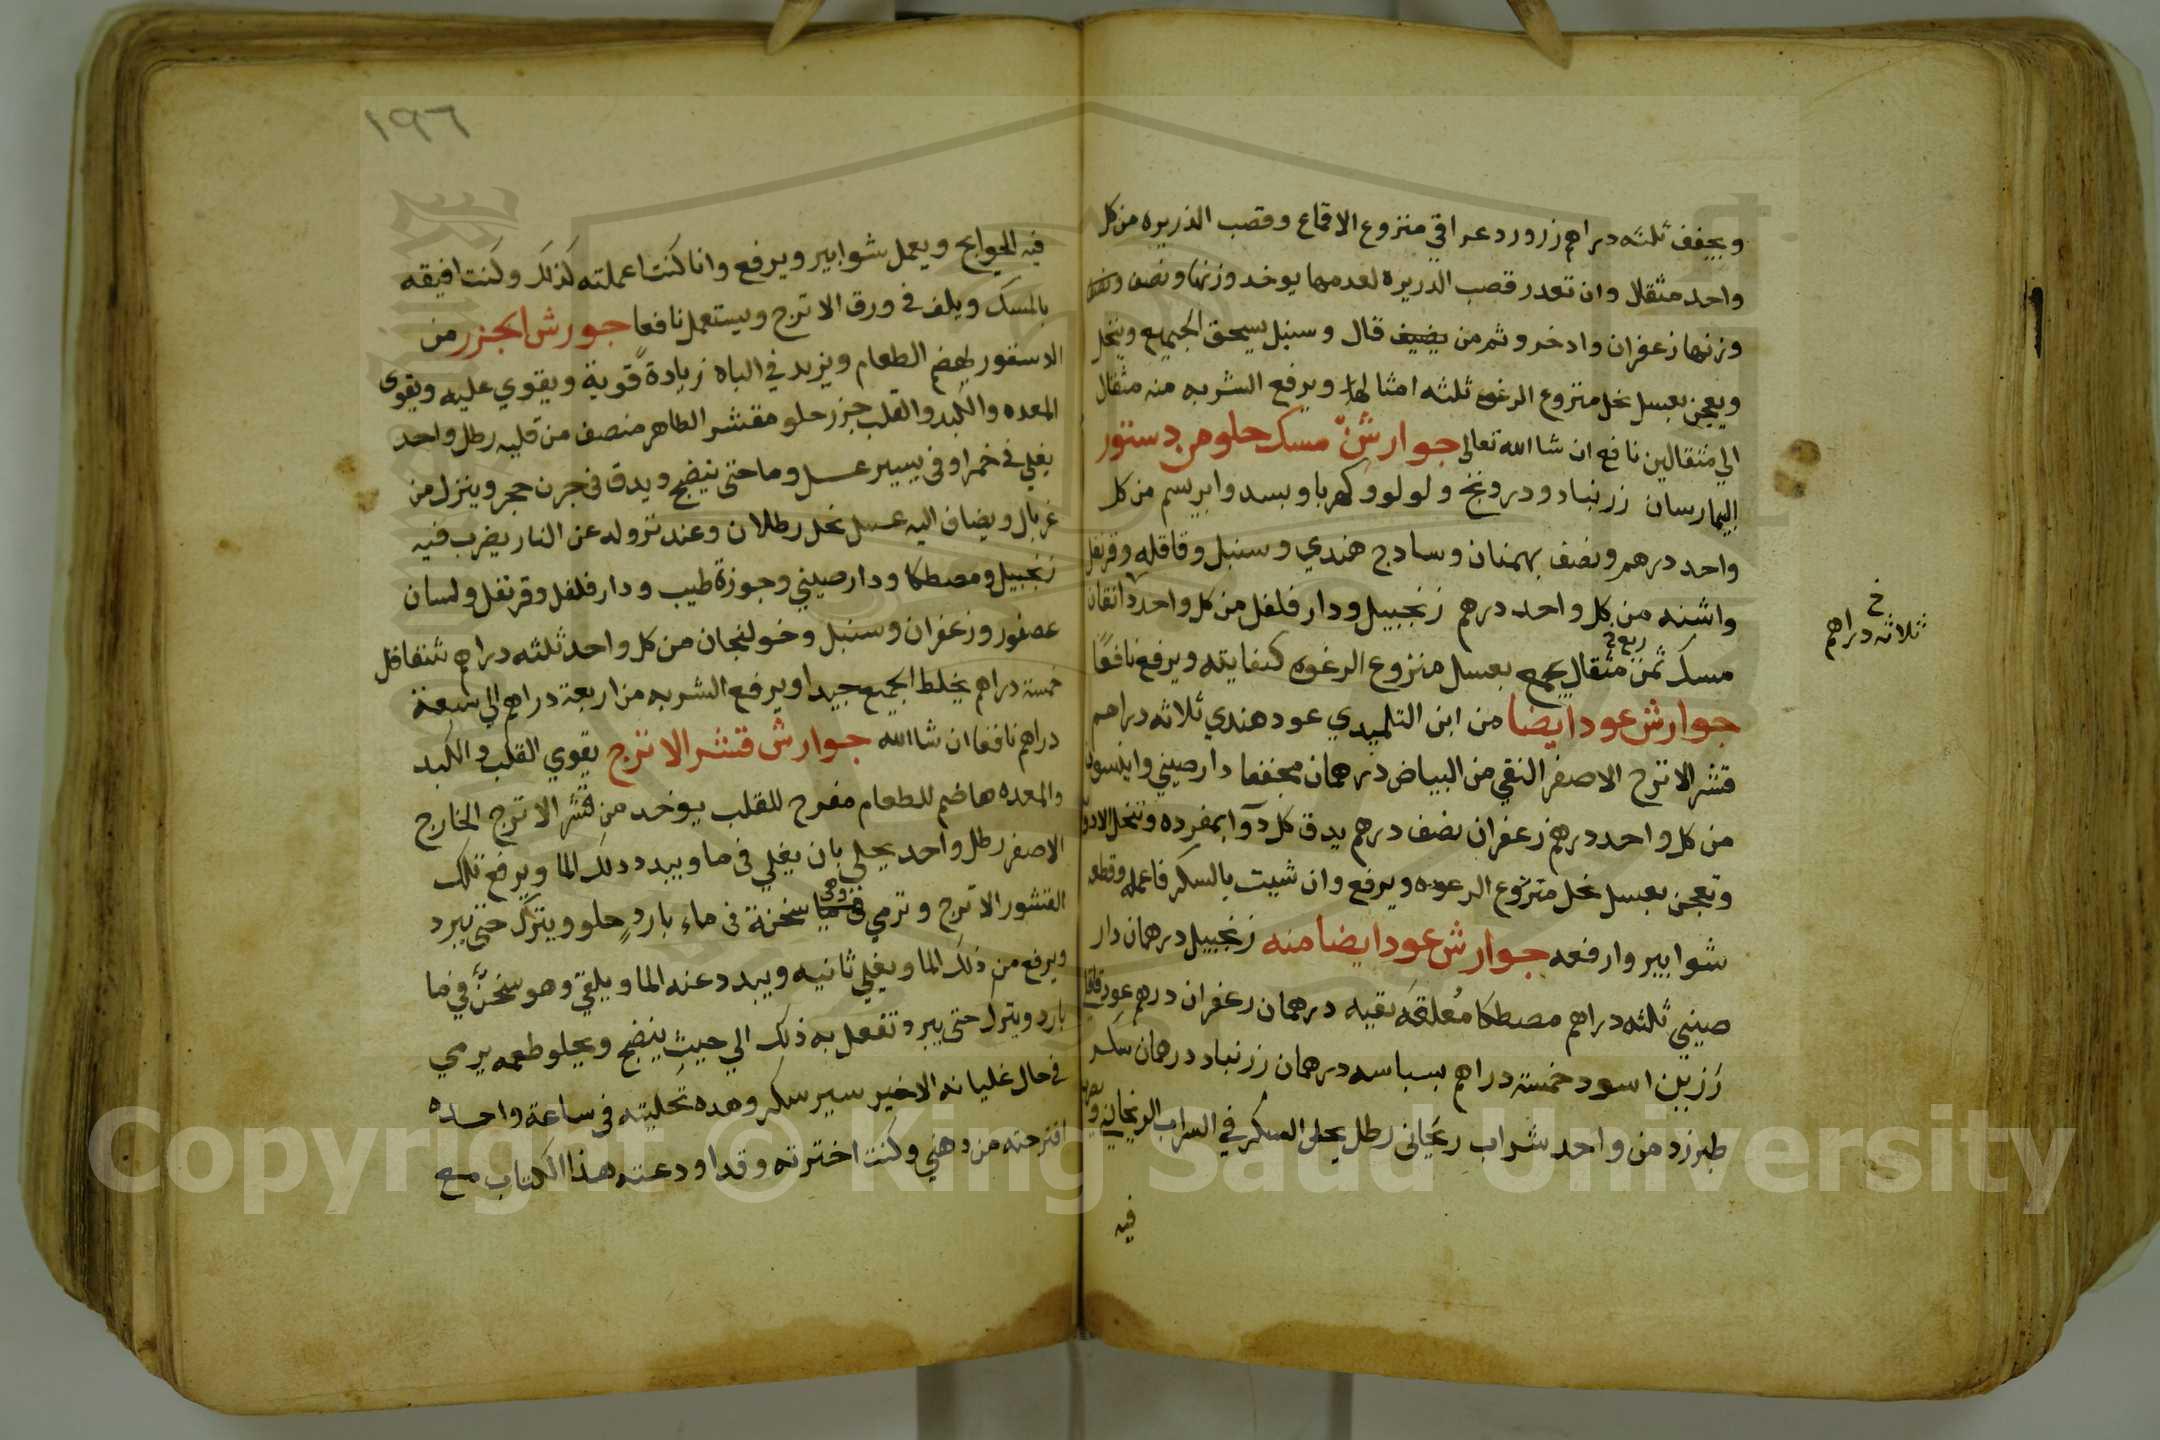 ويجفف ثلثه دراهم زر ورد عراقي منزوع الاقماع وقصب الذريره من كل
واحد مثقال وان تعدر قصب الدريره لعدمها يوخد وزنها ونصف
وزنها زعفران وادخر وثم من يضيف قال وسنبل يسحق الجميع وينخل
ويعجن بعسل نحل منزوع الرغوه ثلثه امثالها ويرفع الشربه منه مثقال
الي مثقالين نافع ان شا الله تعالى جوارش مسك حلو من دستور
البيمارسان زرنباد ودرونج ولولو وكهربا وبسد وابريسم من كل
واحد درهم ونصف بهمنان وسادج هندي وسنبل وقاقله وقرنفل
واشنه من كل واحد درهم زنجبيل ودار فلفل من كل واحد دانقان
ربع
مسك ثمن مثقال يجمع بعسل منزوع الرغوه كفايته ويرفع نافعًا
جوارش عود ايضا من ابن التلميدي عود هندي ثلاثه دراهم
قشر الاترج الاصفر النقي من البياض درهمان مجففا دارصيني وانيسون
من كل واحد درهم زعفران نصف درهم يدق كل دوآ بمفرده وتنخل الادويه
وتعجن بعسل نحل منزوع الرعوه ويرفع وان شيت بالسكر فاعمله وقطعه
شوابير وارفعه جوارش عود ايضا منه زنجبيل درهمان دار
صيني ثلثه دراهم مصطكا معلقه نقيه درهمان زعفران درهم عود قاقلي
رزين اسود خمسة دراهم بسباسه درهمان زرنباد درهمان سكر
طبرزد من واحد شراب ريحاني رطل يحل السكر في الشراب الريحاني
فيه
خ
ثلاثه دراهم
١٩٦
فيه الحوايج ويعمل شوابير ويرفع وانا كنت اعملته كذلك وكنت افيقه
بالمسك ويلف في ورق الاترج ويستعمل نافعا جورش الجزر من
الدستور يهضم الطعام ويزيد في الباه زيادة قوية ويقوي عليه ويقوي
المعده والكبد والقلب جزر حلو مقشر الظاهر منصف من قلبه رطل واحد
يغلي في خمر او في يسير عسل وما حتى ينضج ويدق في جرن حجر وينزل من
غربال ويضاف اليه عسل نحل رطلان وعند نزوله عن النار يضرب فيه
زنجبيل ومصطكا ودارصيني وجوزة طيب ودار فلفل وقرنفل ولسان
عصفور وزعفران وسنبل وخولنجان من كل واحد ثلثه دراهم شقاقل
خمسة دراهم يخلط الجميع جيدا ويرفع الشربه من اربعة دراهم الي سبعة
دراهم نافعا ان شا الله جوارش قشر الاترج يقوي القلب والكبد
والمعده هاضم للطعام مفرح للقلب يوخد من قشر الاترج الخارج
الاصفر رطل واحد يحلي بان يغلي في ما ويبدد دلك الما ويرفع تلك
القشور الاترج وترمي وهي سخنة في ماء بارد حلو ويترك حتى يبرد
ويرفع من ذلك الما ويغلي ثانيه ويبدد عنه الما ويلقي وهو سخن في ما
بارد ويترك حتى يبرد وتفعل به ذلك الي حيث ينضج ويحلو طعمه يرمي
في حال غليانه الاخير سير سكر وهده تحليته في ساعة واحده
اقترحته من دهني وكنت اخترته وقد اودعته هذا الكتاب مع